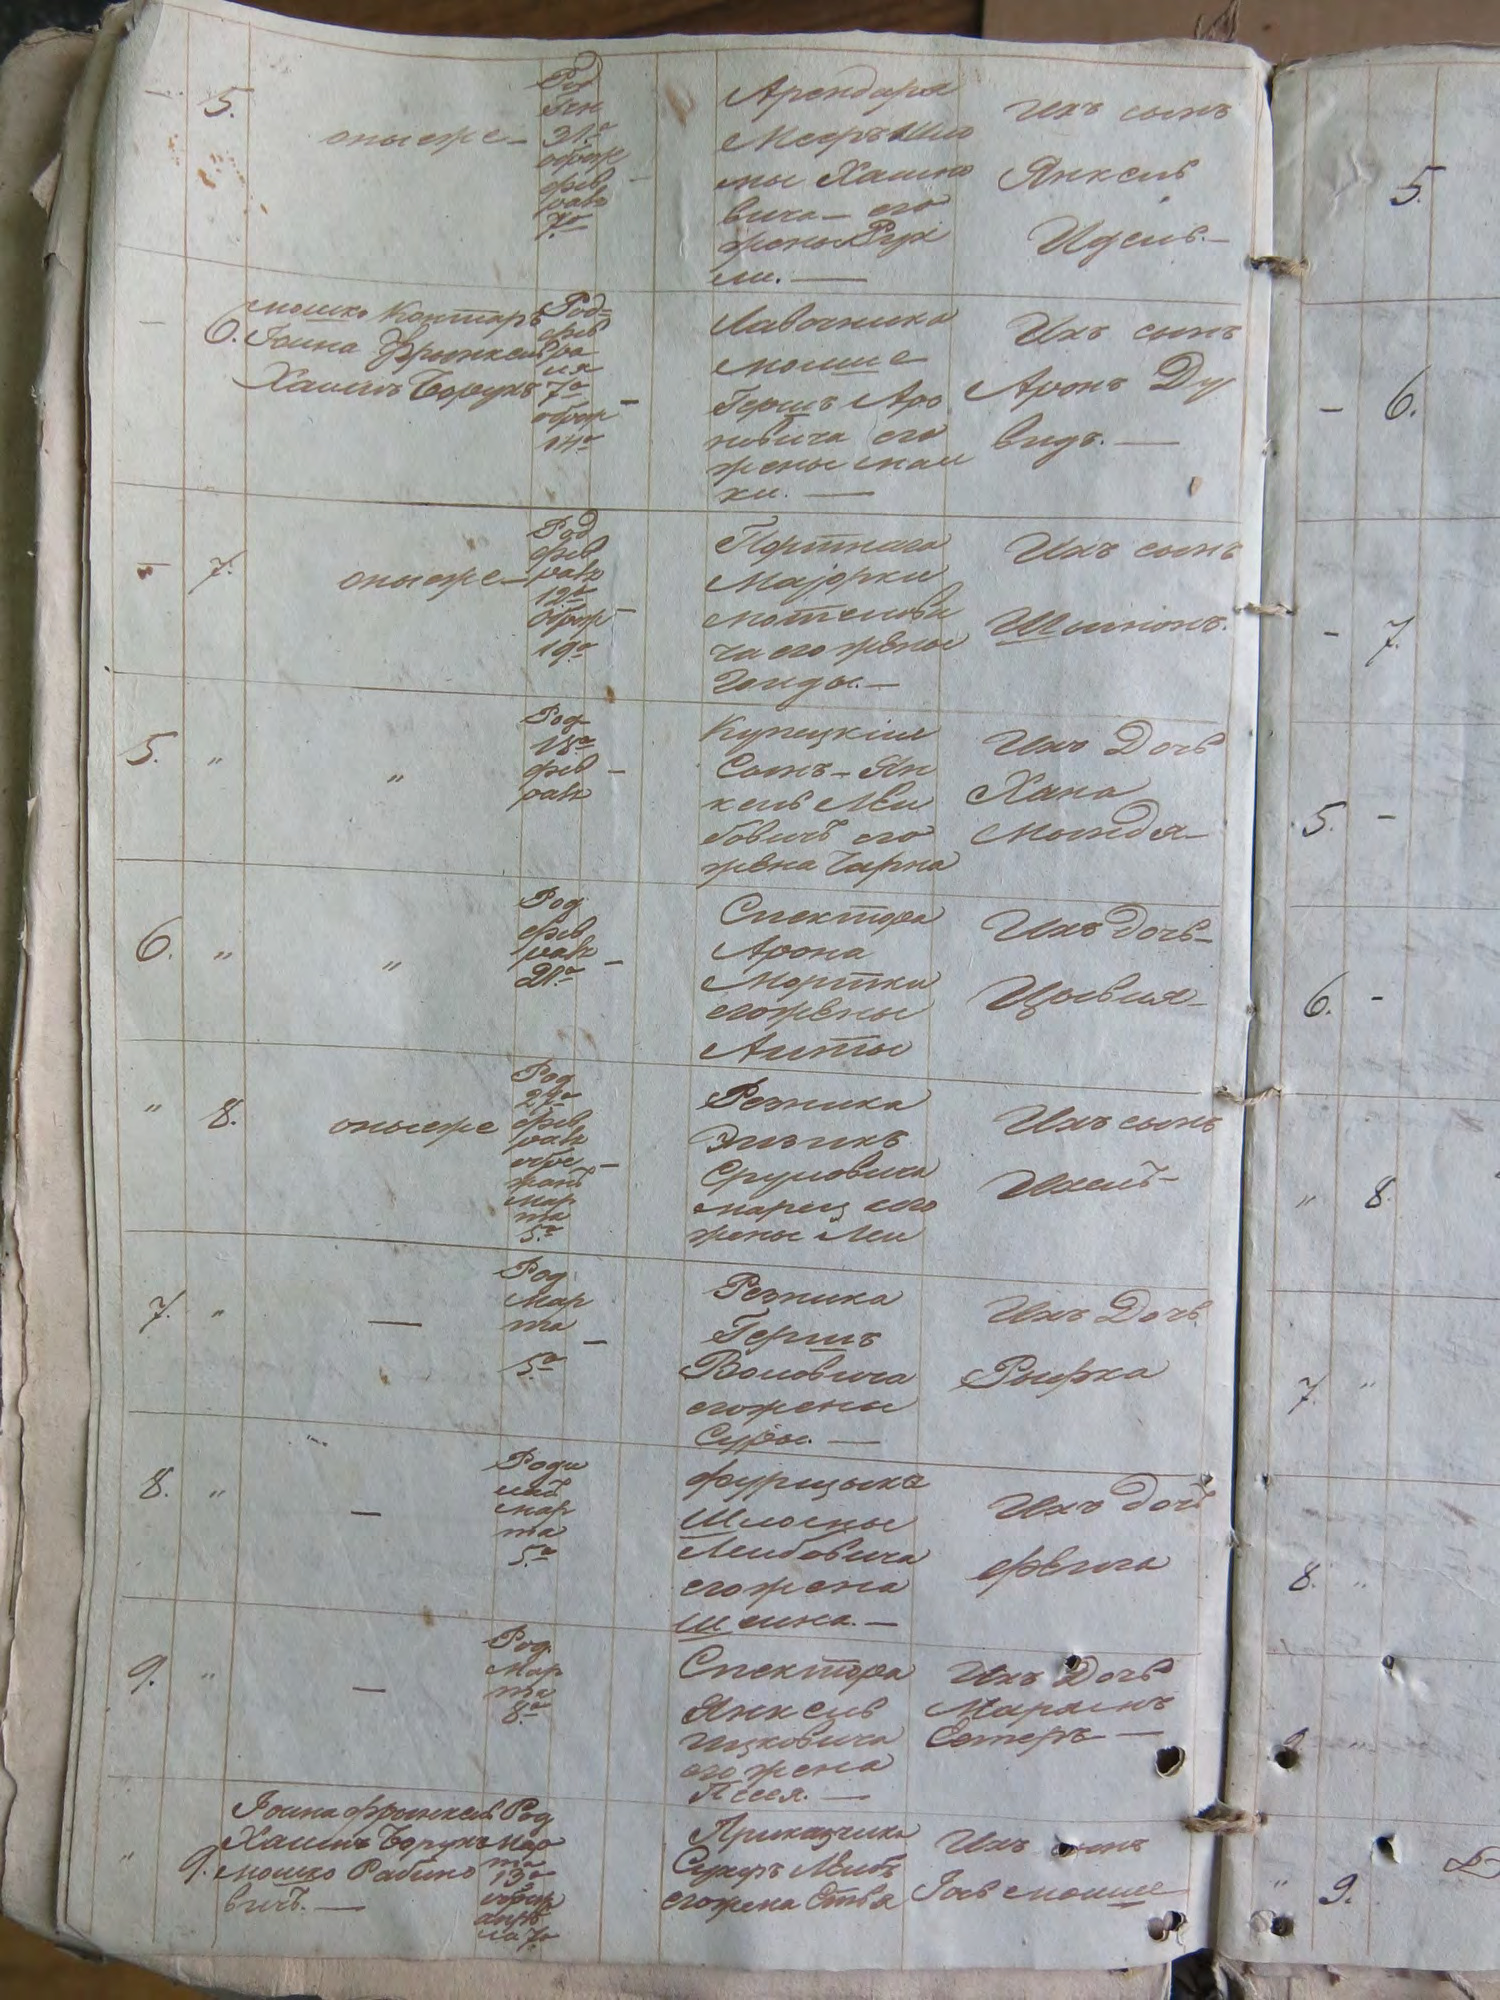 5.
оныеже —
Род
Ген
31го
обреж
фев
раля
7го
Арендаря
Мееръ Шло
мы Хаимо
вича — его
жены Рух
ли. —
Ихъ сынъ
Янкель
Идель. —
6.
Мошко Контаръ
Іоина Френкель
Хаимъ Борухъ
Род
фев
ра
ля
7го
обреж
14го
Лавочника
Мошше
Гершъ Аро
новича его
жены Мал
ки. —
Ихъ сынъ
Аронъ Ду
видъ. —
7.
оныеже —
Род
фев
раля
12го
обреж
19го
Портнаго
Маіорки
Мотелеви
ча его жены
Голды. —
Ихъ сынъ
Шлиомъ.
5. "
"
Род
18го
фев
раля
Купецкій
Сынъ — Ян
кель Лей
бовичъ его
жена Чарна
Ихъ Дочь
Хана
Мындля
6. "
"
Род
фев
раля
21го
Спектора
Арона
Мортки
его жены
Аиты
Ихъ дочь —
Цывия —
" 8.
оныеже
Род
27го
фев
раля
обре
жанъ
Мар
та
5го
Резника
Эйзикъ
Сруловича
его
жены Леи
Ихъ сынъ
Ихелъ —
7. "
—
Род
Мар
та
5го
Резника
Гершъ
Воловича
его жены
Суры. —
Ихъ Дочь
Рыфка
8. "
—
Роди
лась
Мар
та
5го
Фурщыка
Шлеомы
Лейбовича
его жена
Шейна. —
Ихъ дочь
Фейга
9. "
—
Род
Мар
та
8го
Спектора
Янкель
Ицковича
его жена
Песся. —
Ихъ Дочь
Марьямъ
Естеръ —
" 9.
Іоина Френкель
Хаимъ Борухъ
Мошко Рабино
вичъ. —
Род
Мар
та
13го
обреж
апре
ля 7го
Приказчика
Сухеръ Лейбъ
его жена Етья
Ихъ сынъ
Іось Мошше
5.
— 6.
— 7.
5. —
6. —
" 8.
7. "
8. "
9 "
" 9.